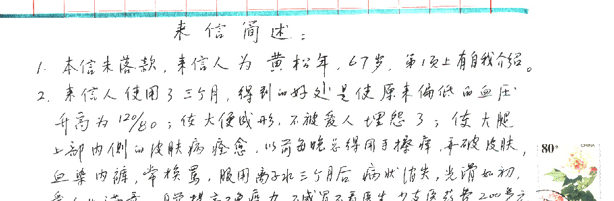 来信简述：
1. 本信未落款，来信人为黄松年，67岁，第1页上有自我介绍。
2. 来信人使用了三个月，得到的好处是使原来偏低的血压
升高为120/80；使大便成形，不被爱人埋怨了；使大腿
上部内侧的皮肤病痊愈，以前每晚总得用手搔痒，弄破皮肤，
血染内裤，常挨骂，服用离子水三个月后病状消失，光滑如初，
80分
CHINA